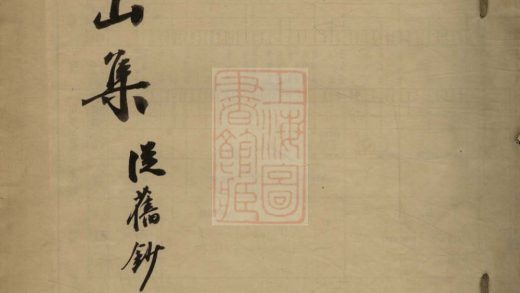 山集
從舊鈔
上海圖
書館藏